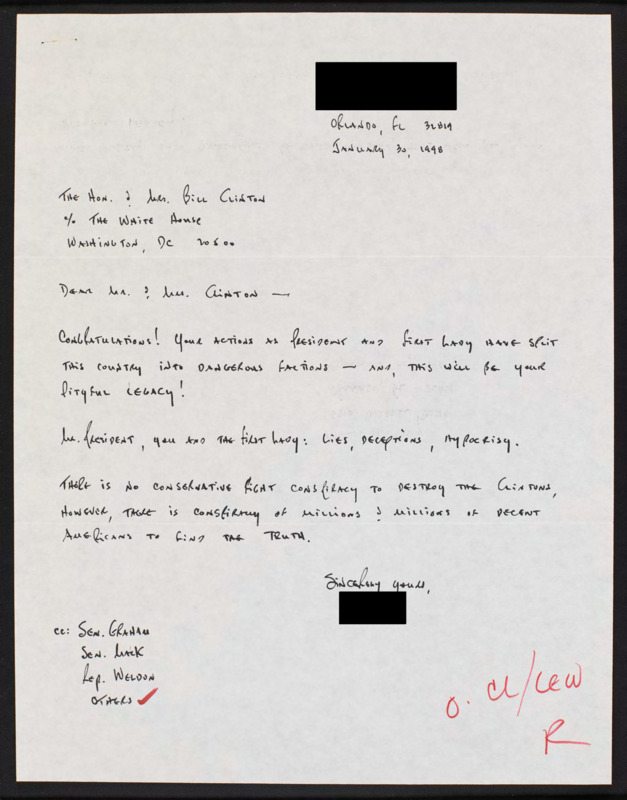 ORLANDO, FL 32819
JANUARY 30, 1998
THE HON. & MRS. BILL CLINTON
% THE WHITE HOUSE
WASHINGTON, DC 20500
DEAR MR. & MRS. CLINTON —
CONGRATULATIONS! YOUR ACTIONS AS PRESIDENT AND FIRST LADY HAVE SPLIT
THIS COUNTRY INTO DANGEROUS FACTIONS — AND, THIS WILL BE YOUR
PITYFUL LEGACY!
MR. PRESIDENT, YOU AND THE FIRST LADY: LIES, DECEPTIONS, HYPOCRISY.
THERE IS NO CONSERVATIVE RIGHT CONSPIRACY TO DESTROY THE CLINTONS,
HOWEVER, THERE IS CONSPIRACY OF MILLIONS & MILLIONS OF DECENT
AMERICANS TO FIND THE TRUTH.
SINCERELY YOURS,
cc: SEN. GRAHAM
SEN. MACK
REP. WELDON
OTHERS ✓
O. CL/LEW
R